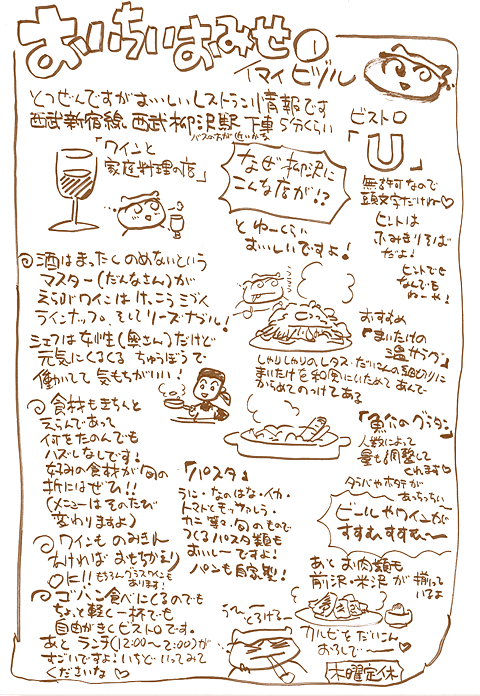 おいちいおみせ①
イマイ ビヅル
とつぜんですがおいしいレストラン情報です
西武新宿線、西武柳沢駅 下車 5分くらい
バスのちか近いかな
ビストロ
「U」
無許可なので
頭文字だけね♡
ヒントは
ふみきりそば
だよ!
ヒントでも
なんでも
ねーや!
「ワインと
家庭料理の店」
なぜ柳沢に
こんな店が!?
とゆーくらい
おいしいですよ!
酒はまったくのめないという
マスター(だんなさん)が
えらぶワインはけっこうシブく
ラインナップ。そしてリーズナブル!
シェフは女性(奥さん)だけど
元気にくるくるちゅうぼうで
働いてて気もちがいい!
おすすめ
「まいたけの
温サラダ」
しゃりしゃりのレタス・だいこんの細切りに
まいたけを和風にいためてあんで
からめてのっけてある
食材もきちんと
えらんであって
何をたのんでも
ハズレなしです!
好みの食材が旬の
折にはぜひ!!
(メニューはそのたび
変わりますよ)
「魚介のグラタン」
人数によって
量も調整して
くれます♡
タラバやホタテが
あっちっちい〜
ビールやワインが
すすむすすむ〜
「パスタ」
うに・なのはな・イカ・
トマトとモッツァレラ・
カニ等々、旬のもので
つくるパスタ類も
おいしーですよ!
パンも自家製!
ワインものみきん
なければおもちかえり
OK!! もちろんグラスワインも
あります!
ゴハン食べにくるのでも
ちょっと軽く一杯でも
自由がきくビストロです。
あと ランチ(12:00〜2:00)が
すごいですよ!いちどいってみて
くださいな♡
あとお肉類も
前沢・米沢が揃っ
ているよ
う〜〜
とろける〜
カルビをだいこん
おろしで〜♡
木曜定休